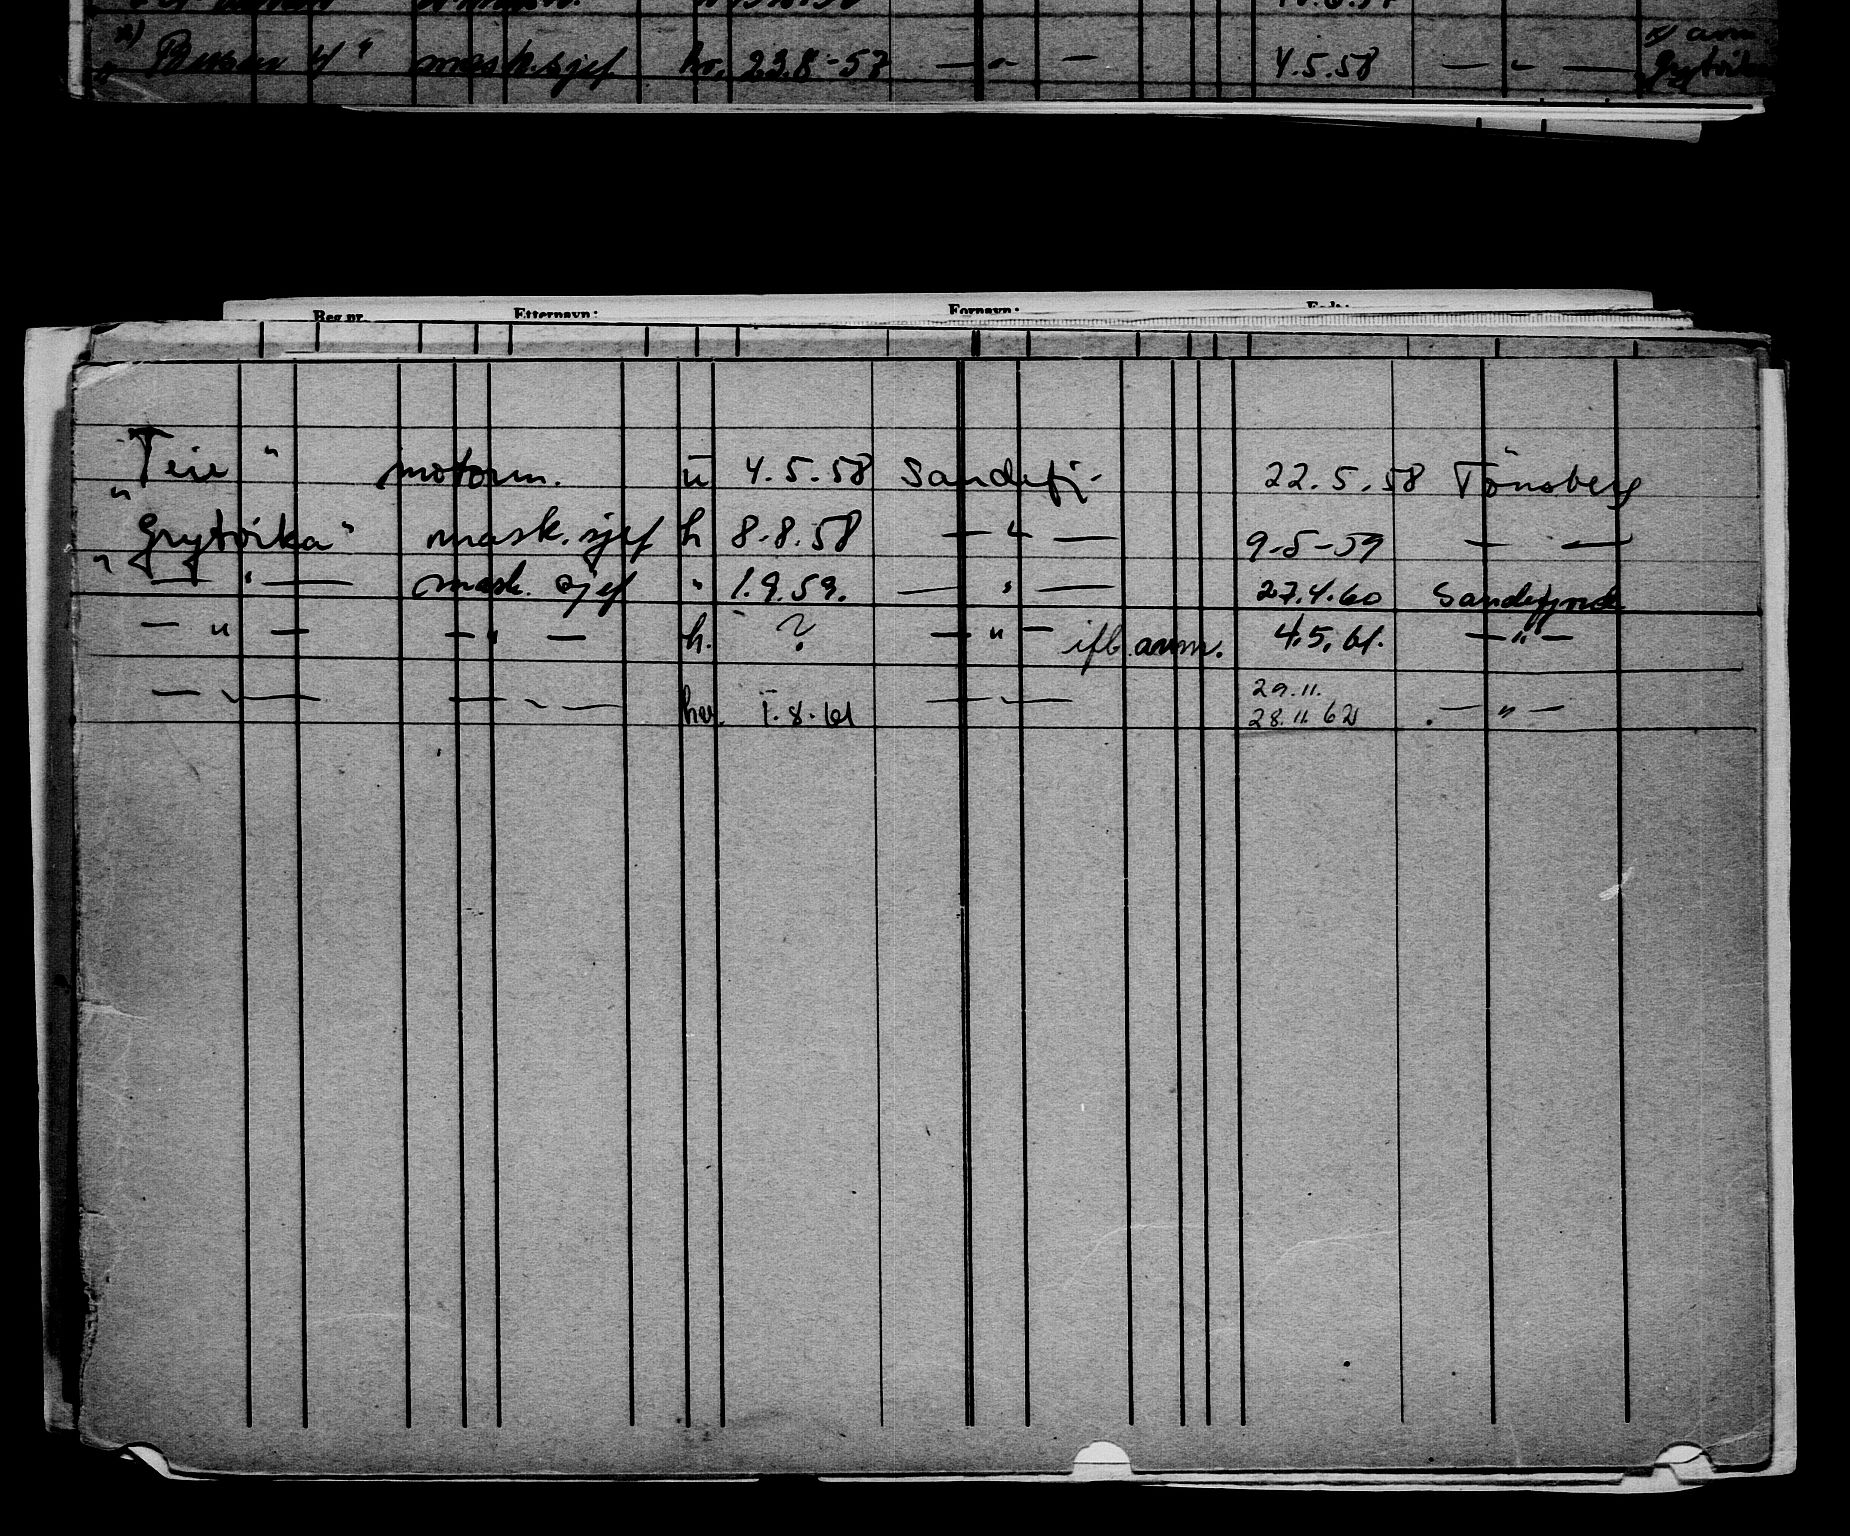 x) Busen 4" mask.sjef hv. 23.8-57 — " — 4.5.58 — " — x) anm Grytvika
Reg.nr. Etternavn: Fornavn: Født:
"Teie" motorm. u 4.5.58 Sandefj. 22.5.58 Tönsberg
"Grytvika" mask.sjef h 8.8.58 — " — 9-5-59 — " —
— " — mask. sjef " 1.9.59. — " — 27.4.60 Sandefjord
— " — — " — h. ? — " — ifb anm. 4.5.61. — " —
— " — — " — hv. 1.8.61 — " — 29.11.
28.11.62 — " —